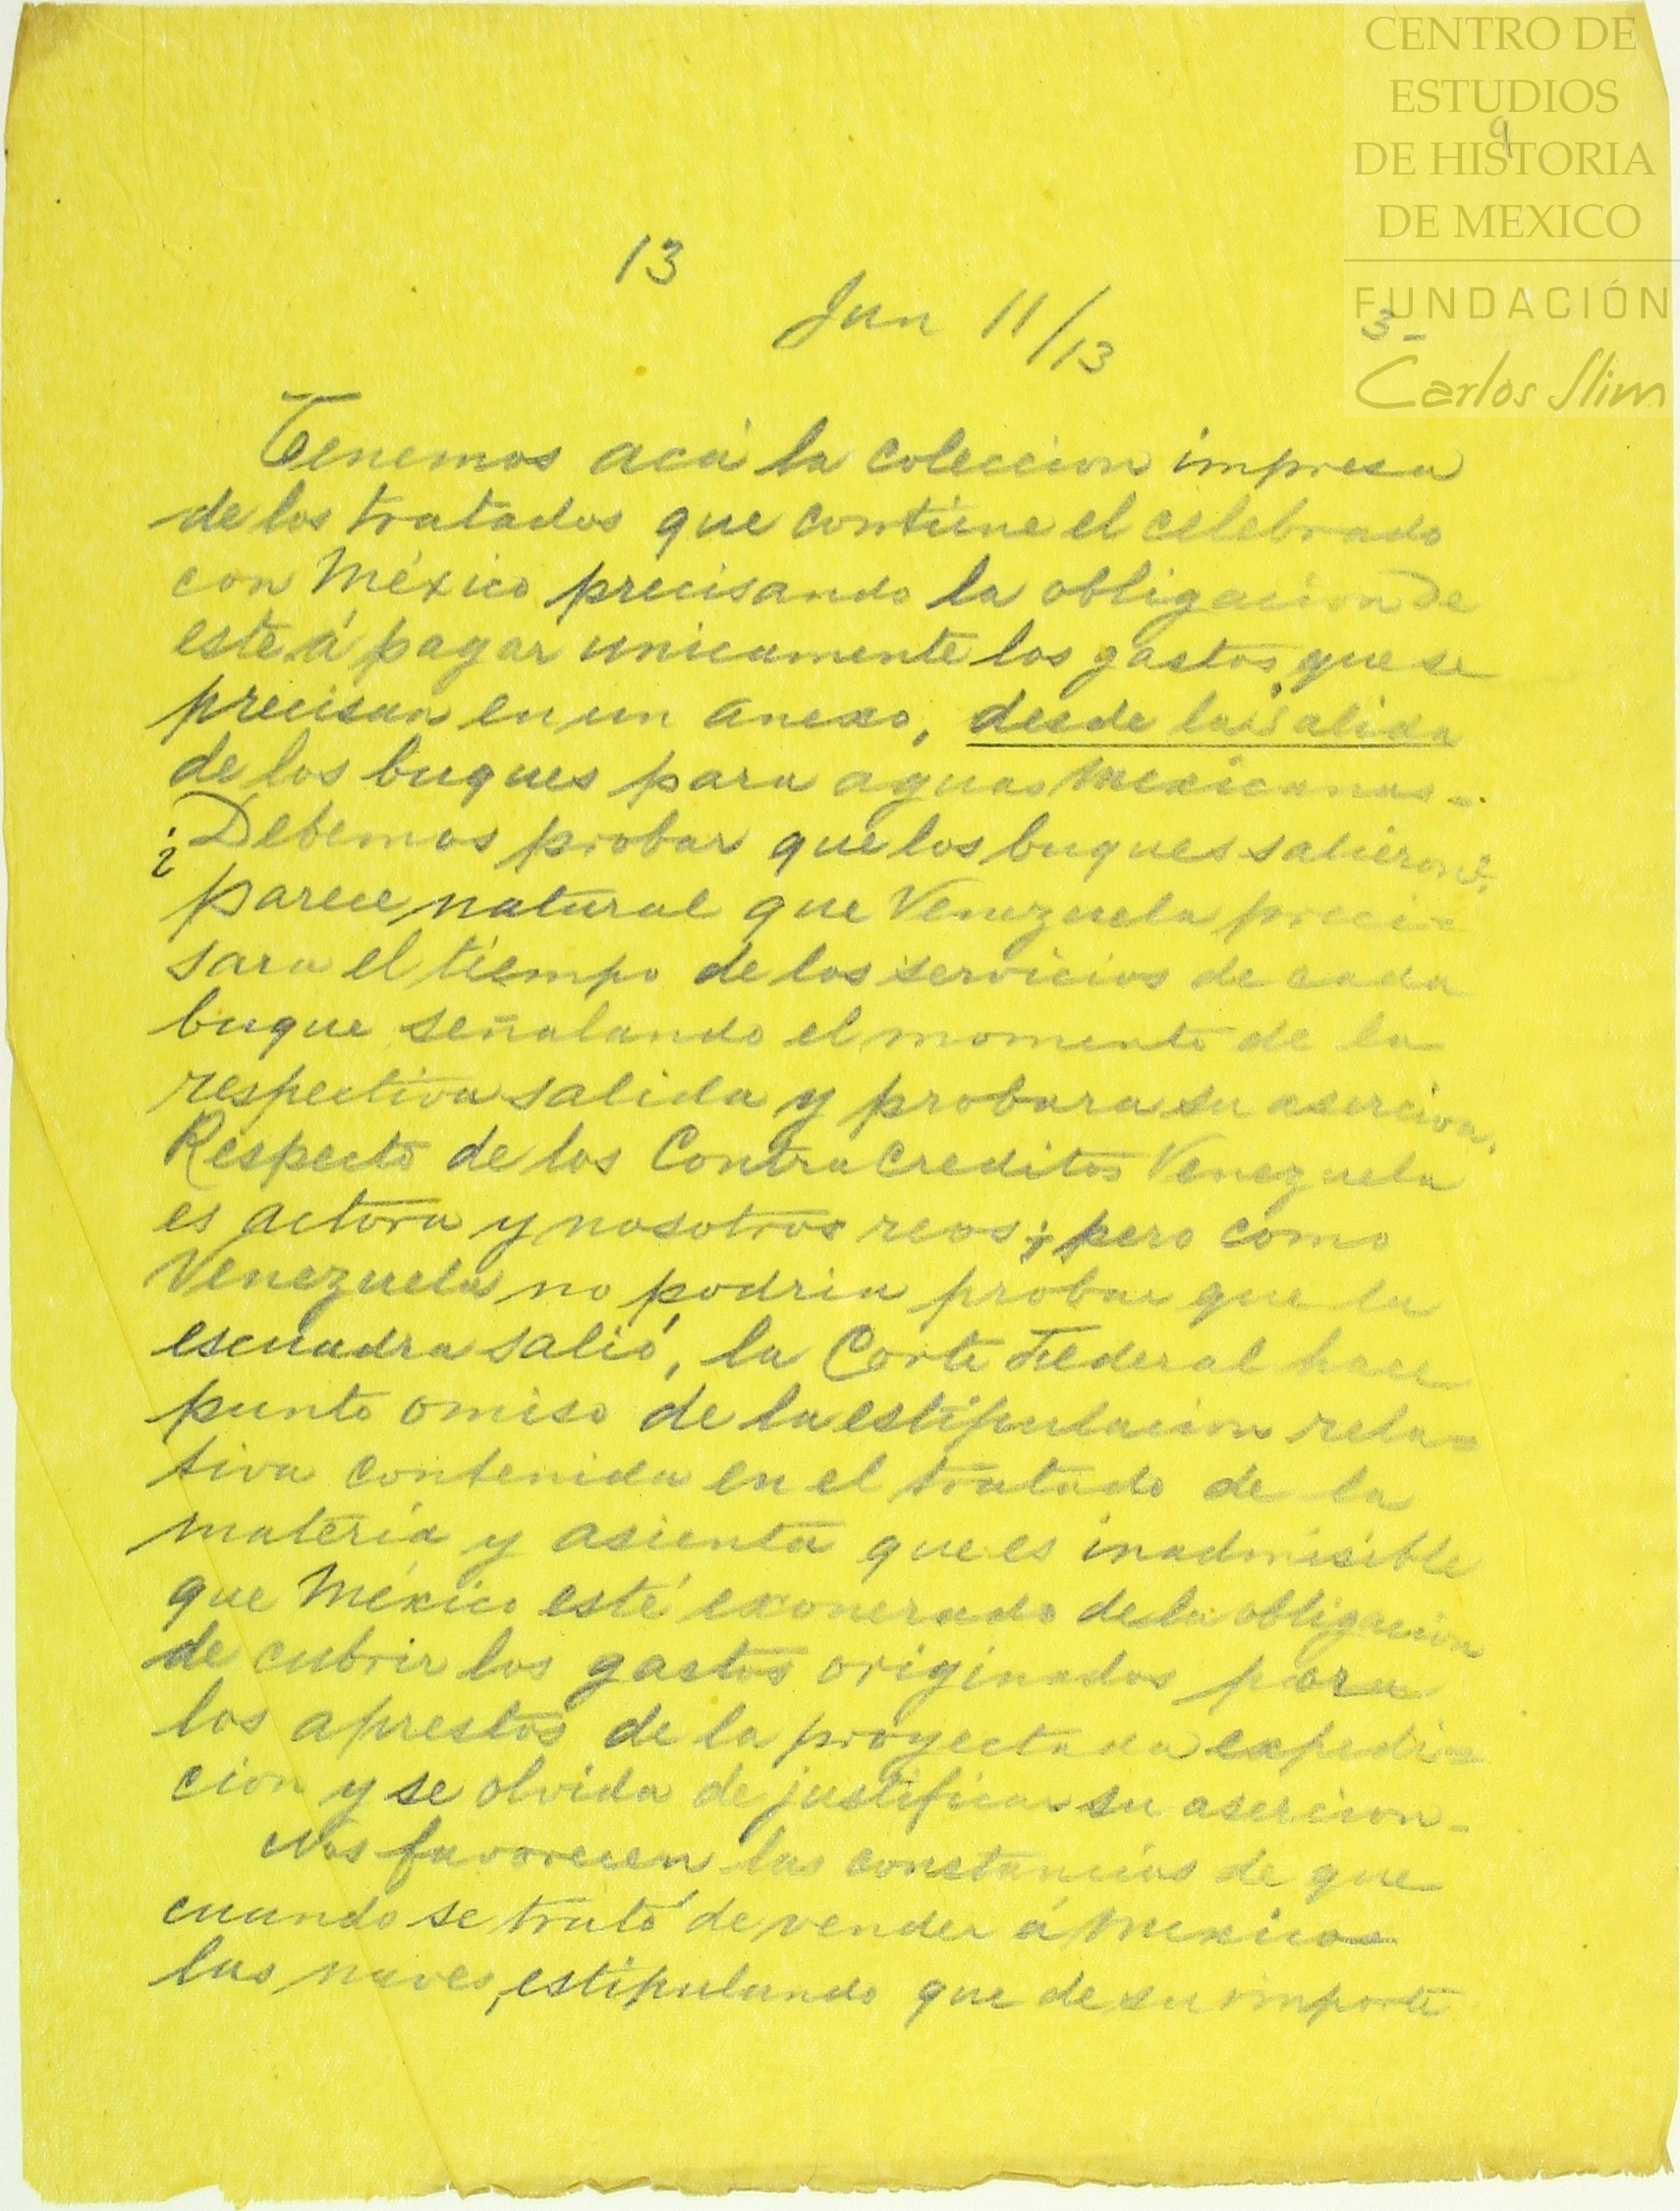 CENTRO DE
ESTUDIOS
9
DE HISTORIA
DE MEXICO
FUNDACIÓN
Carlos Slim
13
Jun 11/13
3-
Tenemos acá la coleccion impresa
de los tratados que contiene el celebrado
con México precisando la obligacion de
este á pagar unicamente los gastos que se
precisan en un anexo, desde la salida
de los buques para aguas mexicanas-.
¿Debemos probar que los buques salieron?
parece natural que Venezuela preci=
sara el tiempo de los servicios de cada
buque señalando el momento de la
respectiva salida y probara su asercion.
Respecto de los Contra creditos Venezuela
es actora y nosotros reos; pero como
Venezuela no podria probar que la
escuadra salió, la Corte Federal hace
punto omiso de la estipulacion rela=
tiva contenida en el tratado de la
materia y asienta que es inadmisible
que México esté exonerado de la obligacion
de cubrir los gastos originados para
los aprestos de la proyectada expedi=
cion y se olvida de justificar su asercion-
Nos favorecen las constancias de que
cuando se trató de vender á Mexico
las naves, estipulando que de su importe